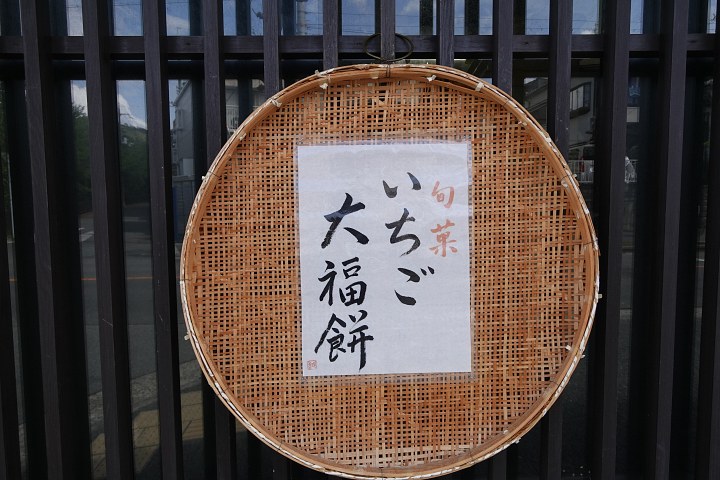 旬菓
いちご
大福餅